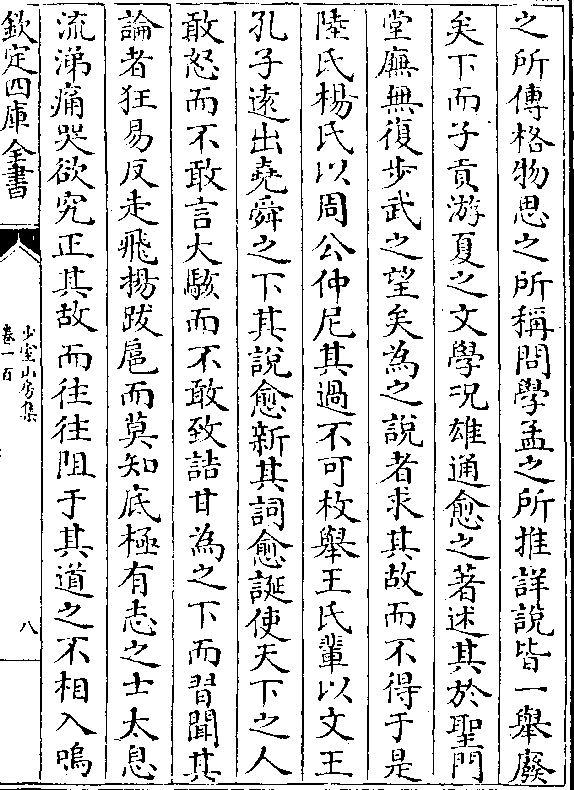 之所傳格物思之所稱問學孟之所推詳說皆一舉廢
矣下而子貢游夏之文學况雄通愈之著述其於聖門
堂廡無復步武之望矣為之說者求其故而不得于是
陸氏楊氏以周公仲尼其過不可枚舉王氏輩以文王
孔子遠出堯舜之下其說愈新其詞愈誕使天下之人
敢怒而不敢言大駭而不敢致詰甘為之下而習聞其
論者狂易反走飛揚跋扈而莫知底極有志之士太息
流涕痛哭欲究正其故而往往阻于其道之不相入嗚
欽定四庫全書
少室山房集
卷一百
八